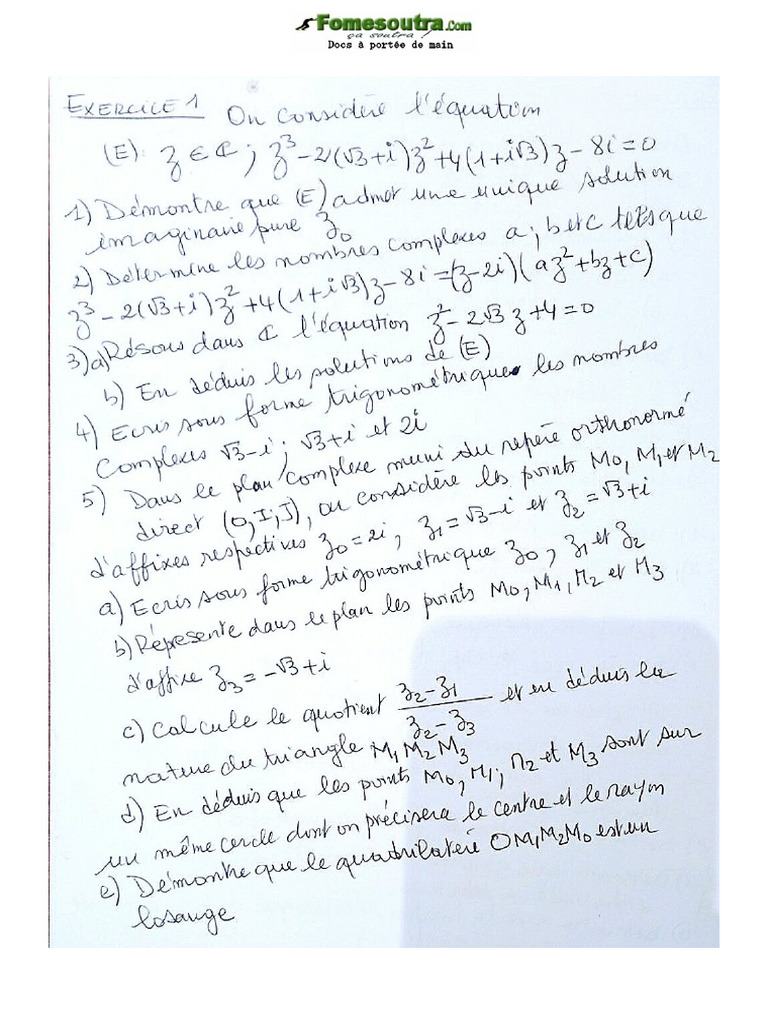 Fomesoutra.com
ça soutra !
Docs à portée de main
EXERCICE 1 On considère l'équation
(E): z ∈ ℂ ; z³ - 2(√3+i)z² + 4(1+i√3)z - 8i = 0
1) Démontre que (E) admet une unique solution
imaginaire pure z₀
2) Détermine les nombres complexes a ; b et c tels que
z³ - 2(√3+i)z² + 4(1+i√3)z - 8i = (z-2i)(az²+bz+c)
3) a) Résous dans ℂ l'équation z² - 2√3z + 4 = 0
b) En déduis les solutions de (E)
4) Ecris sous forme trigonométrique les nombres
Complexes √3-i ; √3+i et 2i
5) Dans le plan complexe muni du repère orthonormé
direct (O,I,J), on considère les points M₀, M₁ et M₂
d'affixes respectives z₀=2i, z₁=√3-i et z₂=√3+i
a) Ecris sous forme trigonométrique z₀, z₁ et z₂
b) Réprésente dans le plan les points M₀, M₁, M₂ et M₃
d'affixe z₃ = -√3+i
c) Calcule le quotient (z₂-z₁)/(z₂-z₃) et en déduis la
nature du triangle M₁M₂M₃
d) En déduis que les points M₀, M₁, M₂ et M₃ sont sur
un même cercle dont on précisera le centre et le rayon
e) Démontre que le quadrilatère OM₁M₂M₀ est un
losange